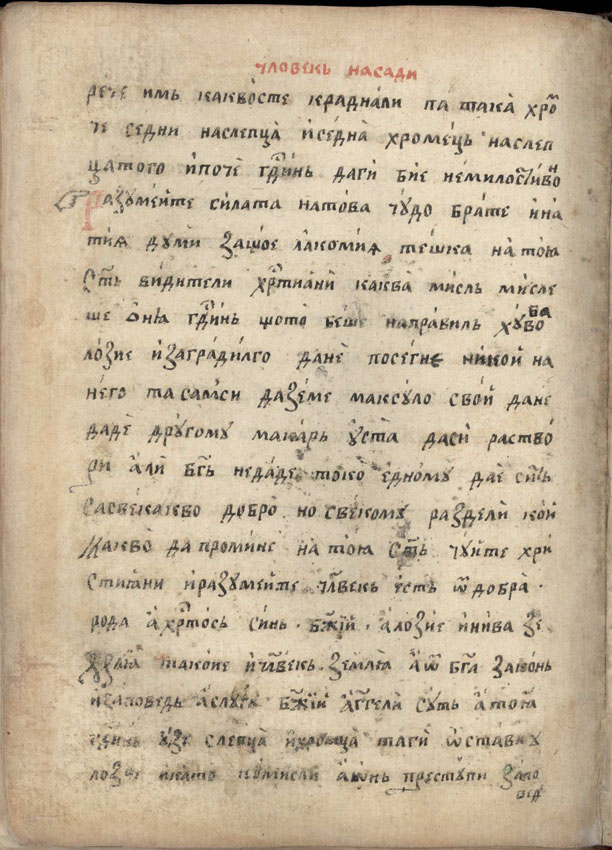 человекь насади
рече имь каквосте краднали па така хро҃
че седни наслепца и седна хромець наслеп
цатого ипоче гд҃инь даги бие немилостивно
разумейте силата натова чудо брате ина
тия думи защое лакомия тешка на тоя
ст҃ь видители хр҃тиани каква мисль мисле
ше ѡнꙗ гд҃инь щото беше направиль хубава
лозие изаградилго дане посегне никой на
него та самси даземе максуло свой дане
даде другому макарь уста даси раство
ри али бг҃ь недаде токо едному дае
савсекакво добро но свекому раздели кой
какво да промине на тоя ст҃ь чуйте хри
стиꙗни иразумейте чл҃векь есть ѿ добра
рода а хр҃тось синь бж҃ии алозие инива зе
такоие ичл҃векь земля аѿ бг҃а законь
изаповедь аслуги бж҃ии агг҃ели суть атоꙗ
узе слепца ихромца таги ѡстави у
лозие аѡнь преступи запо
вед